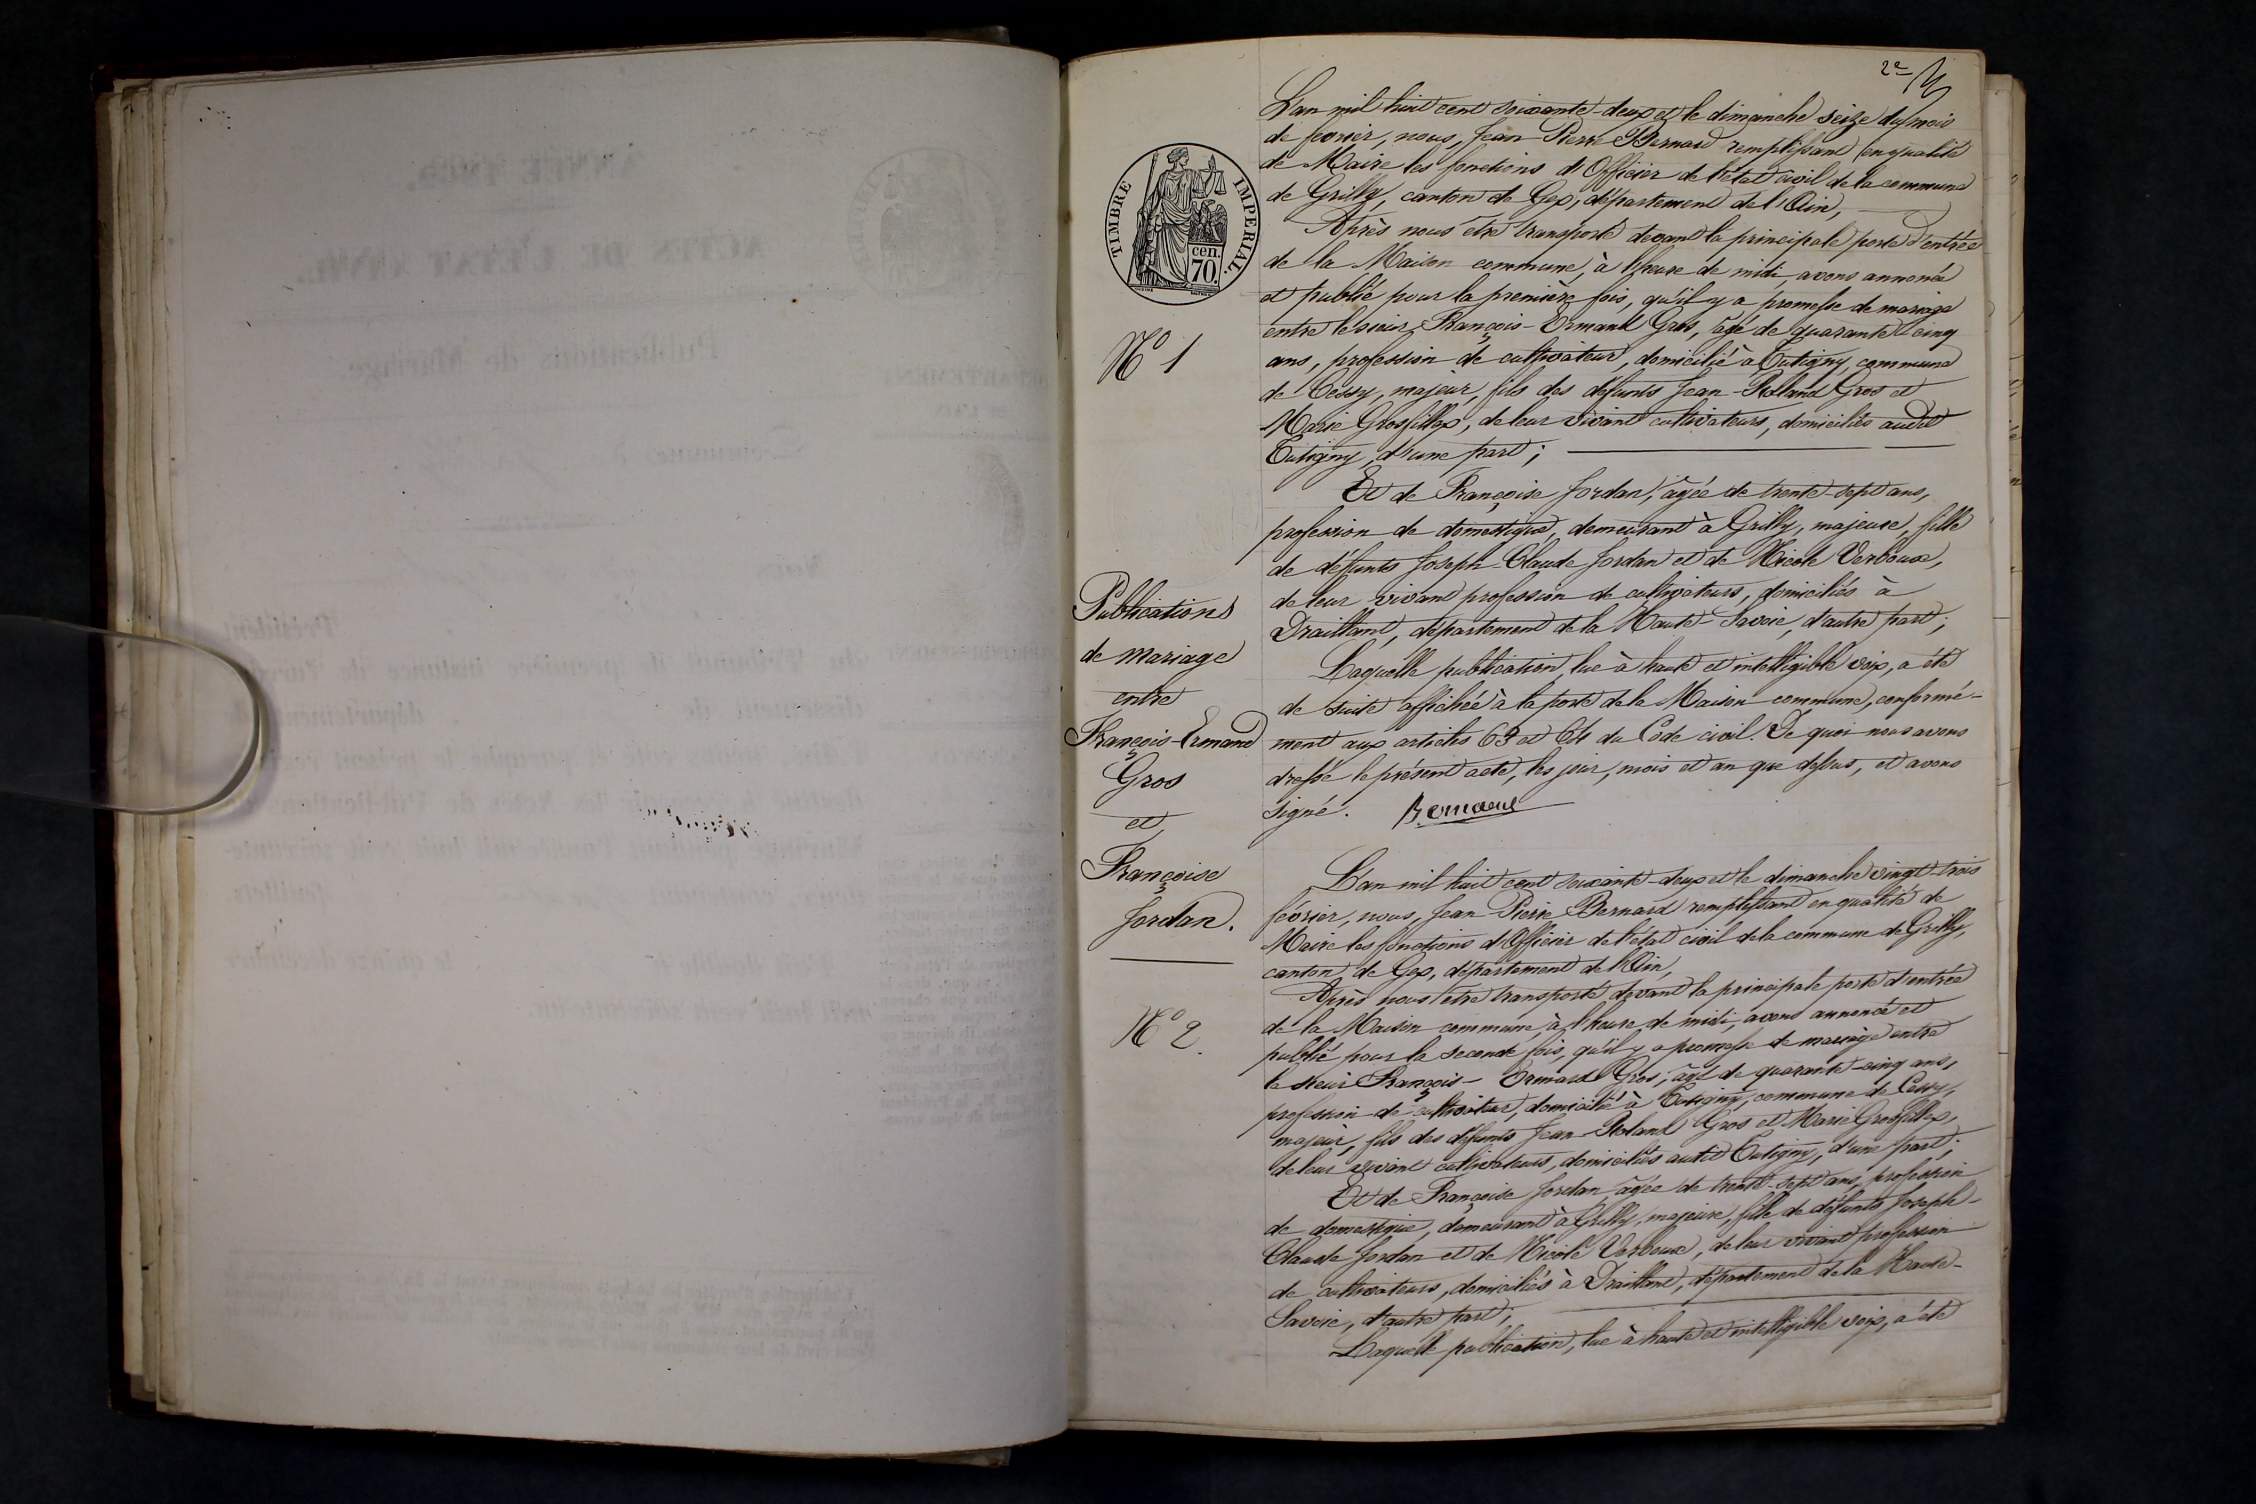 2e
TIMBRE IMPERIAL.
cen.
70.
N° 1
Publications
de mariage
entre
François-Ermand
Gros
et
Françoise
Jordan.
N° 2.
L'an mil huit cent soixante-deux et le dimanche seize du mois
de février, nous, Jean Pierre Bernard remplissant en qualité
de Maire les fonctions d'Officier de l'état civil de la commune
de Grilly, canton de Gex, département de l'Ain,
Après nous être transporté devant la principale porte d'entrée
de la Maison commune, à l'heure de midi, avons annoncé
et publié pour la première fois, qu'il y a promesse de mariage
entre le sieur François-Ermand Gros, âgé de quarante-cinq
ans, profession de cultivateur, domicilié à Tutigny, commune
de Cessy, majeur, fils des défunts Jean-Roland Gros et
Marie Grosfillex, de leur vivant cultivateurs, domiciliés audit
Tutigny, d'une part;
Et de Françoise Jordan, âgée de trente-sept ans,
profession de domestique, demeurant à Grilly, majeure, fille
de défunts Joseph-Claude Jordan et de Nicole Verboux,
de leur vivant profession de cultivateurs, domiciliés à
Draillant, département de la Haute-Savoie, d'autre part;
Laquelle publication, lue à haute et intelligible voix, a été
de suite affichée à la porte de la Maison commune, conformé-
ment aux articles 63 et 64 du Code civil. De quoi nous avons
dressé le présent acte, les jour, mois et an que dessus, et avons
signé. Bernard
L'an mil huit cent soixante-deux et le dimanche vingt-trois
février, nous, Jean Pierre Bernard remplissant en qualité de
Maire les fonctions d'Officier de l'état civil de la commune de Grilly,
canton de Gex, département de l'Ain,
Après nous être transporté devant la principale porte d'entrée
de la Maison commune, à l'heure de midi, avons annoncé et
publié pour la seconde fois, qu'il y a promesse de mariage entre
le sieur François-Ermand Gros, âgé de quarante-cinq ans,
profession de cultivateur, domicilié à Tutigny, commune de Cessy,
majeur, fils des défunts Jean-Roland Gros et Marie Grosfillex,
de leur vivant cultivateurs, domiciliés audit Tutigny, d'une part;
Et de Françoise Jordan, âgée de trente-sept ans, profession
de domestique, demeurant à Grilly, majeure, fille de défunts Joseph-
Claude Jordan et de Nicole Verboux, de leur vivant profession
de cultivateurs, domiciliés à Draillant, département de la Haute-
Savoie, d'autre part;
Laquelle publication, lue à haute et intelligible voix, a été